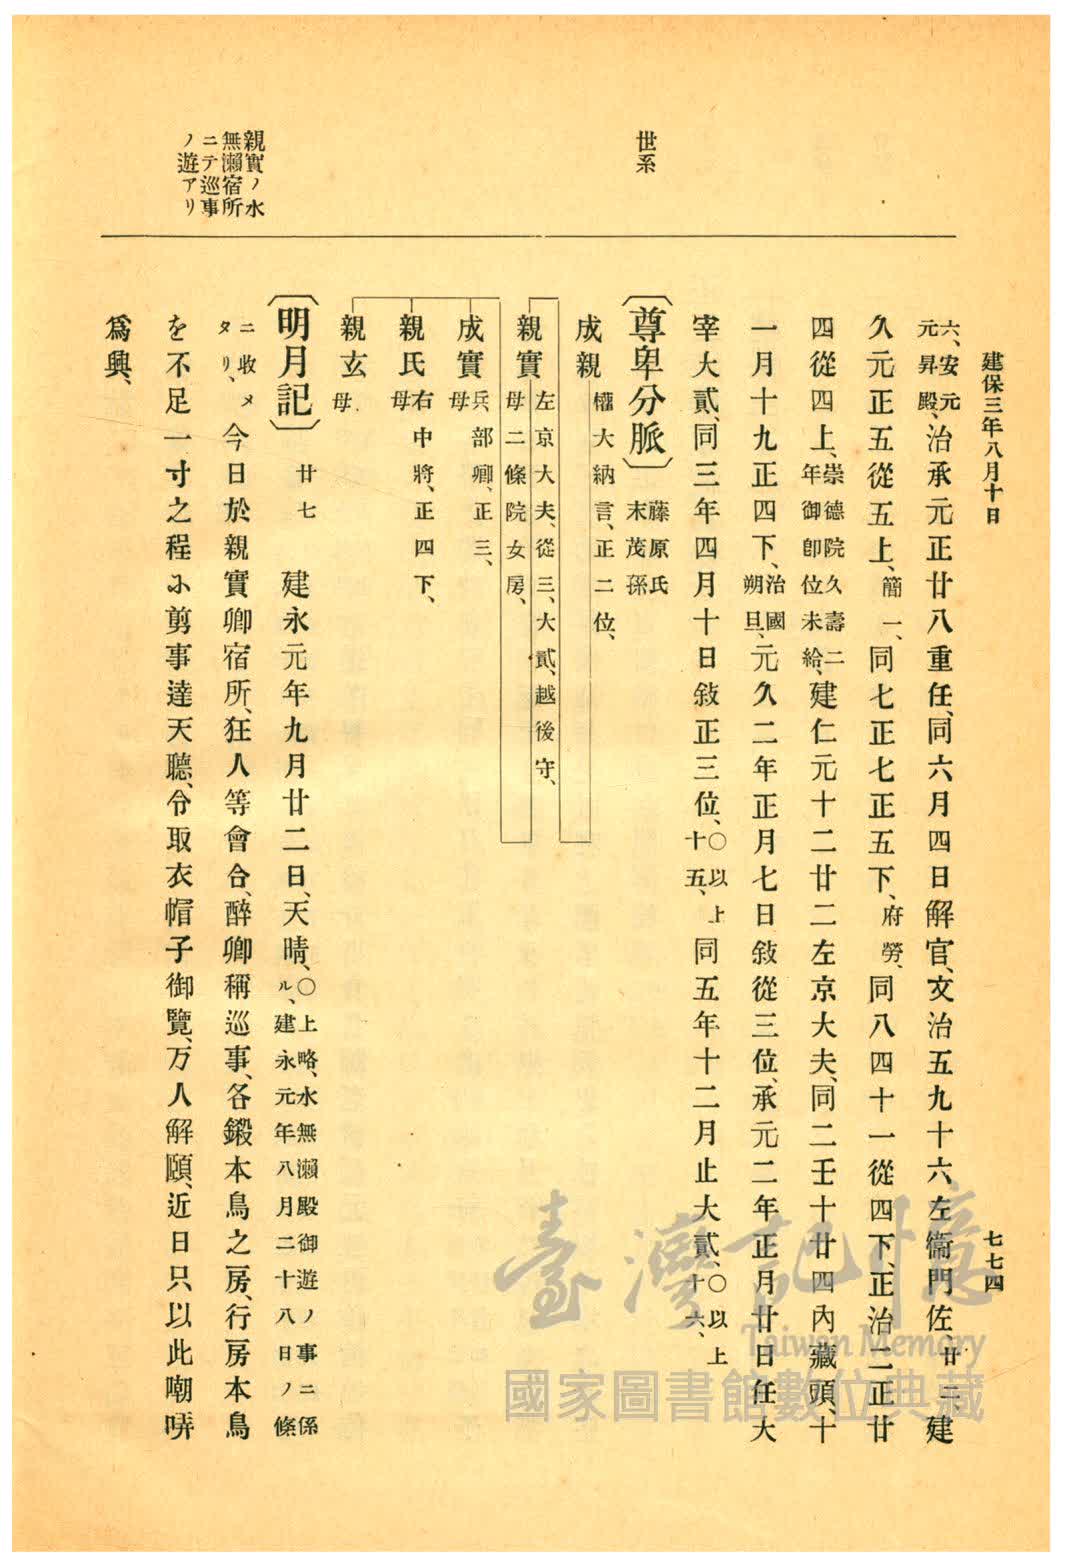 建保三年八月十日
七七四
世系
親實ノ水
無瀨宿所
ニテ巡事
ノ遊アリ
六、安元元昇殿、治承元正廿八重任、同六月四日解官、文治五九十六、左衞門佐、廿二、建
久元正五從五上、簡一、同七正七正五下、府勞、同八四十一從四下、正治二正廿
四從四上、崇德院久壽二年御卽位未給、建仁元十二廿二左京大夫、同二壬十廿四內藏頭、十
一月十九正四下、治國朔旦、元久二年正月七日敍從三位、承元二年正月廿日任大
宰大貳、同三年四月十日敍正三位、○以上十五、同五年十二月止大貳、○以上十六、
〔尊卑分脈〕 藤原氏末茂孫
成親 權大納言、正二位、
親實 左京大夫、從三、大貳、越後守、母二條院女房、
成實 兵部卿、正三、母
親氏 右中將、正四下、母
親玄 母
〔明月記〕 廿七 建永元年九月廿二日、天晴、○上略、水無瀨殿御遊ノ事ニ係ル、建永元年八月二十八日ノ條
ニ收メタリ、今日於親實卿宿所、狂人等會合、醉卿稱巡事、各鍛本鳥之房、行房本鳥
を不足一寸之程ふ剪事達天聽、令取衣帽子御覽、万人解頤、近日只以此嘲哢
爲興、
臺灣記憶
Taiwan Memory
國家圖書館數位典藏